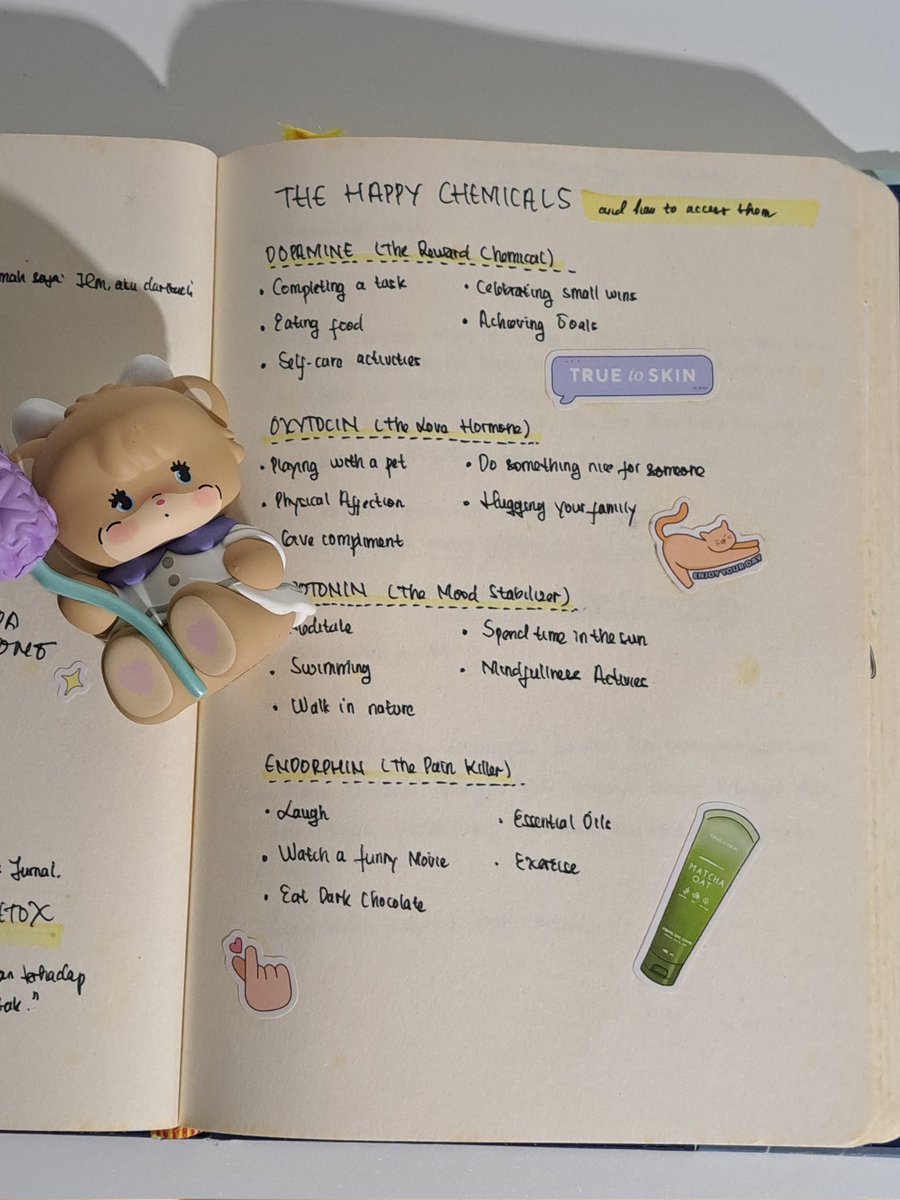 mah saya: Ilm, aku dar
DA
Jurnal.
ETOX
an terhadap
tak."
THE HAPPY CHEMICALS and how to access them
DOPAMINE (The Reward Chemical)
• Completing a task • Celebrating small wins
• Eating food • Achieving Goals
• Self-care activities
TRUE to SKIN
OXYTOCIN (The Love Hormone)
• Playing with a pet • Do something nice for someone
• Physical Affection • Hugging your family
Gave compliment
ENJOY YOUR DAY
OTONIN (The Mood Stabilizer)
Meditate • Spend time in the sun
• Swimming • Mindfullness Activies
• Walk in nature
ENDORPHIN (The Pain Killer)
• Laugh • Essential Oils
• Watch a funny Movie • Exercise
• Eat Dark Chocolate
MATCHA
OAT